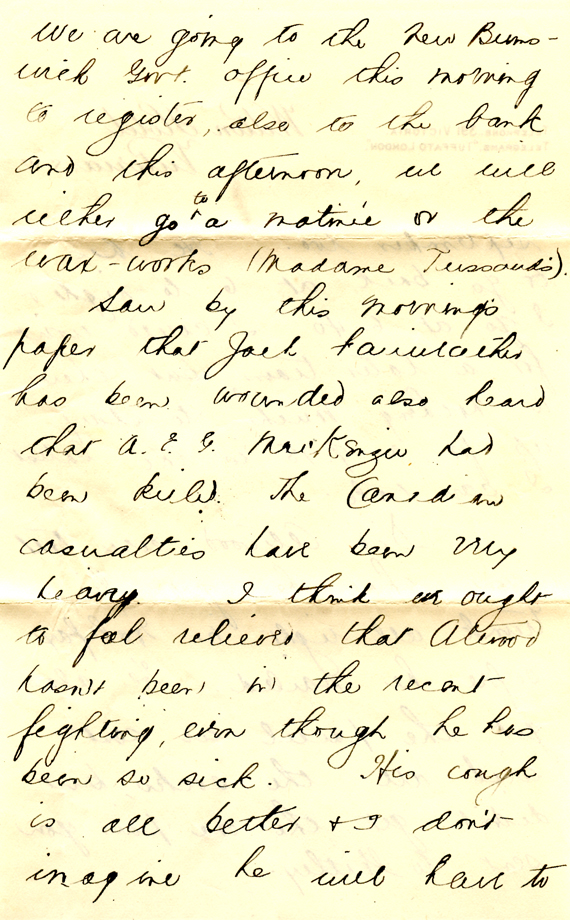 We are going to the New Buns-
wick Govt. office this morning
to register, also to the bank
and this afternoon, we will
either go to a matinée or the
wax-works (Madame Tussauds).
Saw by this mornings
paper that Jack Fairweather
has been wounded also heard
that A. E. G. MacKenzie had
been killed. The Canadian
casualties have been very
heavy. I think we ought
to feel relieved that Atwood
hasn't been in the recent
fighting, even though he has
been so sick. His cough
is all better & I don't
imagine he will have to